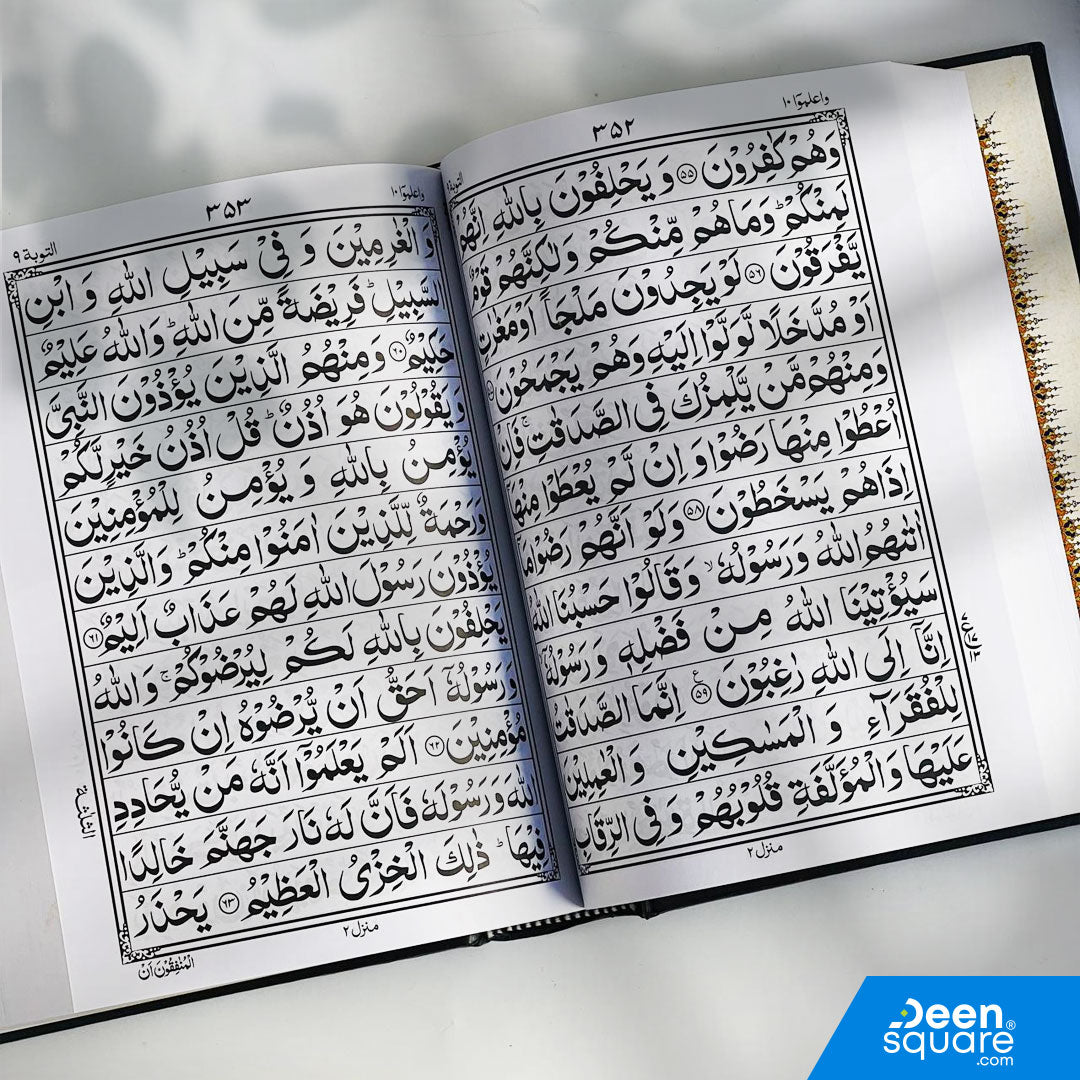 واعلموا ١٠
٣٥٢
التوبة ٩
وَهُمْ كٰفِرُوْنَ ۝٥٥ وَيَحْلِفُوْنَ بِاللّٰهِ اِنَّهُمْ
لَمِنْكُمْ ؕ وَمَا هُمْ مِّنْكُمْ وَلٰكِنَّهُمْ قَوْمٌ
يَّفْرَقُوْنَ ۝٥٦ لَوْ يَجِدُوْنَ مَلْجَاً اَوْ مَغٰرٰتٍ
اَوْ مُدَّخَلًا لَّوَلَّوْا اِلَيْهِ وَهُمْ يَجْمَحُوْنَ
وَمِنْهُمْ مَّنْ يَّلْمِزُكَ فِى الصَّدَقٰتِ ۚ فَاِنْ
اُعْطُوْا مِنْهَا رَضُوْا وَ اِنْ لَّمْ يُعْطَوْا مِنْهَا
اِذَاهُمْ يَسْخَطُوْنَ ۝٥٨ وَلَوْ اَنَّهُمْ رَضُوْا مَا
اٰتٰىهُمُ اللّٰهُ وَرَسُوْلُهٗ ۙ وَقَالُوْا حَسْبُنَا اللّٰهُ
سَيُؤْتِيْنَا اللّٰهُ مِنْ فَضْلِهٖ وَرَسُوْلُهٗۤ
اِنَّاۤ اِلَى اللّٰهِ رٰغِبُوْنَ ۝٥٩ اِنَّمَا الصَّدَقٰتُ
لِلْفُقَرَآءِ وَ الْمَسٰكِيْنِ وَ الْعٰمِلِيْنَ
عَلَيْهَا وَالْمُؤَلَّفَةِ قُلُوْبُهُمْ وَفِى الرِّقَابِ
منزل ٢
واعلموا ١٠
٣٥٣
التوبة ٩
وَ الْغٰرِمِيْنَ وَ فِيْ سَبِيْلِ اللّٰهِ وَ ابْنِ
السَّبِيْلِ ؕ فَرِيْضَةً مِّنَ اللّٰهِ ؕ وَاللّٰهُ عَلِيْمٌ
حَكِيْمٌ ۝٦٠ وَمِنْهُمُ الَّذِيْنَ يُؤْذُوْنَ النَّبِىَّ
وَيَقُوْلُوْنَ هُوَ اُذُنٌ ؕ قُلْ اُذُنُ خَيْرٍ لَّكُمْ
يُؤْمِنُ بِاللّٰهِ وَ يُؤْمِنُ لِلْمُؤْمِنِيْنَ
وَرَحْمَةٌ لِّلَّذِيْنَ اٰمَنُوْا مِنْكُمْ ؕ وَالَّذِيْنَ
يُؤْذُوْنَ رَسُوْلَ اللّٰهِ لَهُمْ عَذَابٌ اَلِيْمٌ ۝٦١
يَحْلِفُوْنَ بِاللّٰهِ لَكُمْ لِيُرْضُوْكُمْ ۚ وَاللّٰهُ
وَرَسُوْلُهٗۤ اَحَقُّ اَنْ يُّرْضُوْهُ اِنْ كَانُوْا
مُؤْمِنِيْنَ ۝٦٢ اَلَمْ يَعْلَمُوْۤا اَنَّهٗ مَنْ يُّحَادِدِ
اللّٰهَ وَرَسُوْلَهٗ فَاَنَّ لَهٗ نَارَ جَهَنَّمَ خَالِدًا
فِيْهَا ؕ ذٰلِكَ الْخِزْىُ الْعَظِيْمُ ۝٦٣ يَحْذَرُ
الثلثة
منزل ٢
الْمُنٰفِقُوْنَ اَنْ
Deen
square®
.com